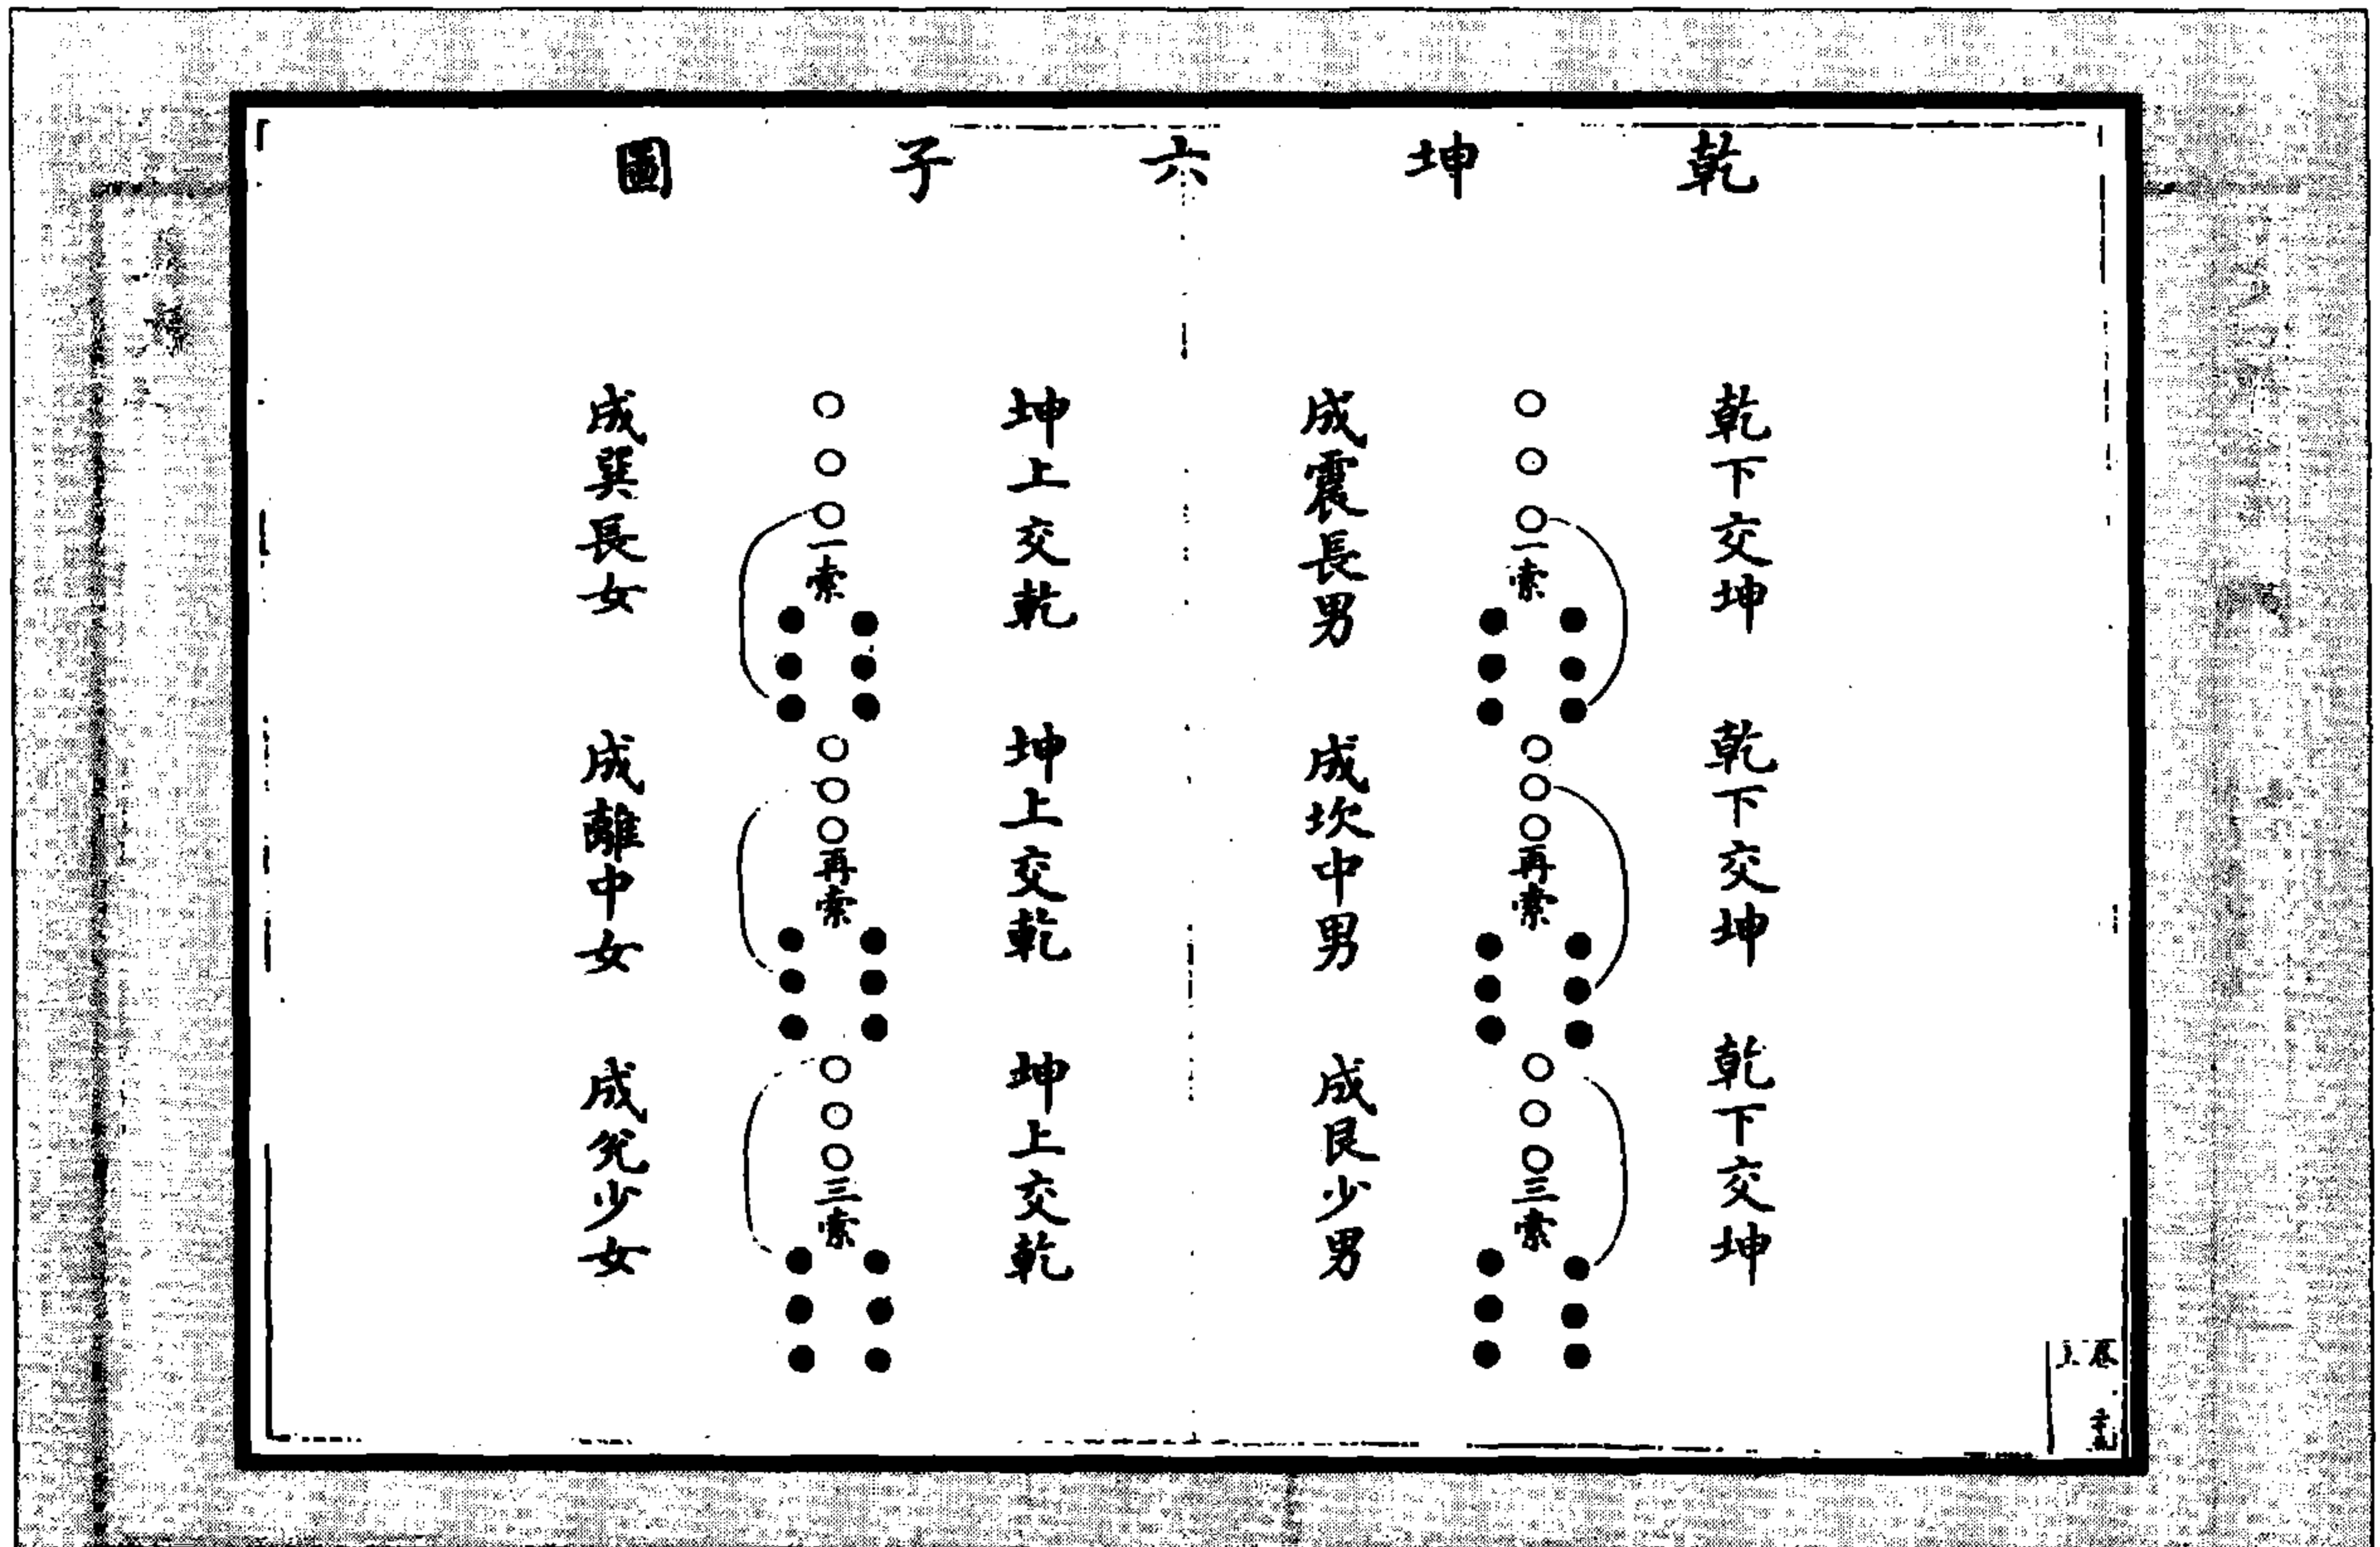 乾坤六子圖
乾下交坤
乾下交坤
乾下交坤
一索
再索
三索
成震長男
成坎中男
成艮少男
坤上交乾
坤上交乾
坤上交乾
一索
再索
三索
成巽長女
成離中女
成兌少女
卷上